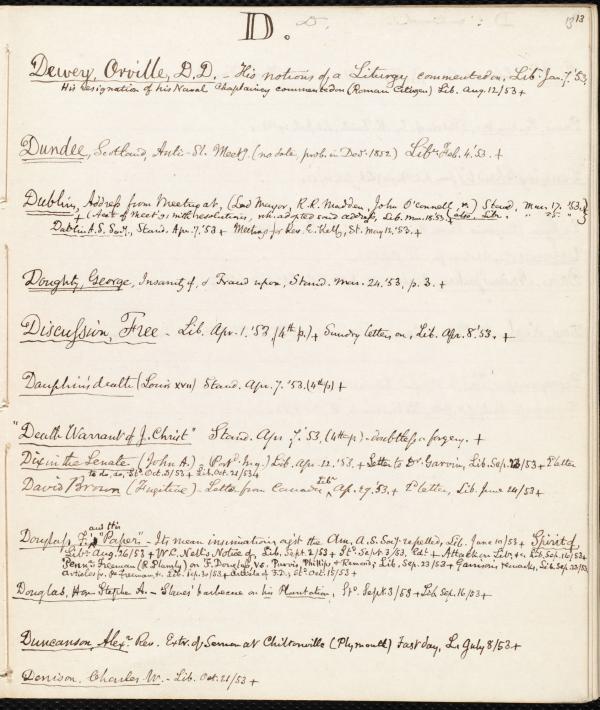 D.
13 13
Dewey, Orville, D.D. - His notions of a Liturgy commented on, Lib. Jan. 7. '53.
His designation of his Naval Chaplaincy commented on (Roman Citizen) Lib. Aug. 12/53 +
Dundee, Scotland, Anti-Sl. Meetg. (no date, prob. in Decr. 1852) Libr. Feb. 4. '53. +
Dublin, Address from Meeting at, (Lord Mayor, R.R. Madden, John O'Connell, &c.) Stand. Mar. 17. '53.
+ (Acct of Meetg, with resolutions, wh. adopted said address, Lib. Mar. 18. '53. + (also Lib. " 25. "
Dublin A.S. Socy., Stand. Apr. 7. '53 + Meeting for Rev. E. Kelly, St. May 12. '53. +
Doughty, George, Insanity of, & Fraud upon, Stand. Mar. 24. '53, p. 3. +
Discussion, Free - Lib. Apr. 1. '53, (4th p.) + Sundry letters on, Lib. Apr. 8. '53. +
Dauphin's death (Louis XVII) Stand. Apr. 7. '53. (4th p) +
"Death Warrant of J. Christ" Stand. Apr. 7. '53, (4th p) - doubtless a forgery. +
Dix in the Senate (John A.) - (Portd. Inq.) Lib. Apr. 12. '53. + Letter to Dr. Garvin, Lib. Sep. /53 + Letter
to do, do, Oct. 2/53 + Lib. Oct. 21/53 +
David Brown (Fugitive). Letter from Canada, Libr. Ap. 29. 53. + letter, Lib. June 24/53 +
Douglass, F. and his "Paper" - Its mean insinuation agst the Am. A.S. Socy. repelled, Lib. June 10/53 + Spirit of,
Libr. Aug. 26/53 + W.C. Nell's Notice of, Lib. Sept. 2/53 + Sept. 3/53, Edl. + Attack on Libr, &c. Lib. Sep. 16/53 +
Freeman (R. Plumly) on F. Douglass, vs. Purvis, Phillips, & Remond; Lib. Sep. 23/53 + Garrison, remarks, Lib. Sep. 23/53
Articles fr. Pa. Freeman, +. Lib. Sep. 30/53 + Articles of F.D., Oct. 15/53 +
Douglas, Hon. Stephn A. - Slaves' barbecue on his Plantation, Sept. 3/53 + Lib. Sep. 16/53 +
Duncanson, Alexr. Rev. Extr. of Sermon at Chiltonville (Plymouth) Fast day, L. July 8/53 +
Denison, Charles W. - Lib. Oct. 21/53 +